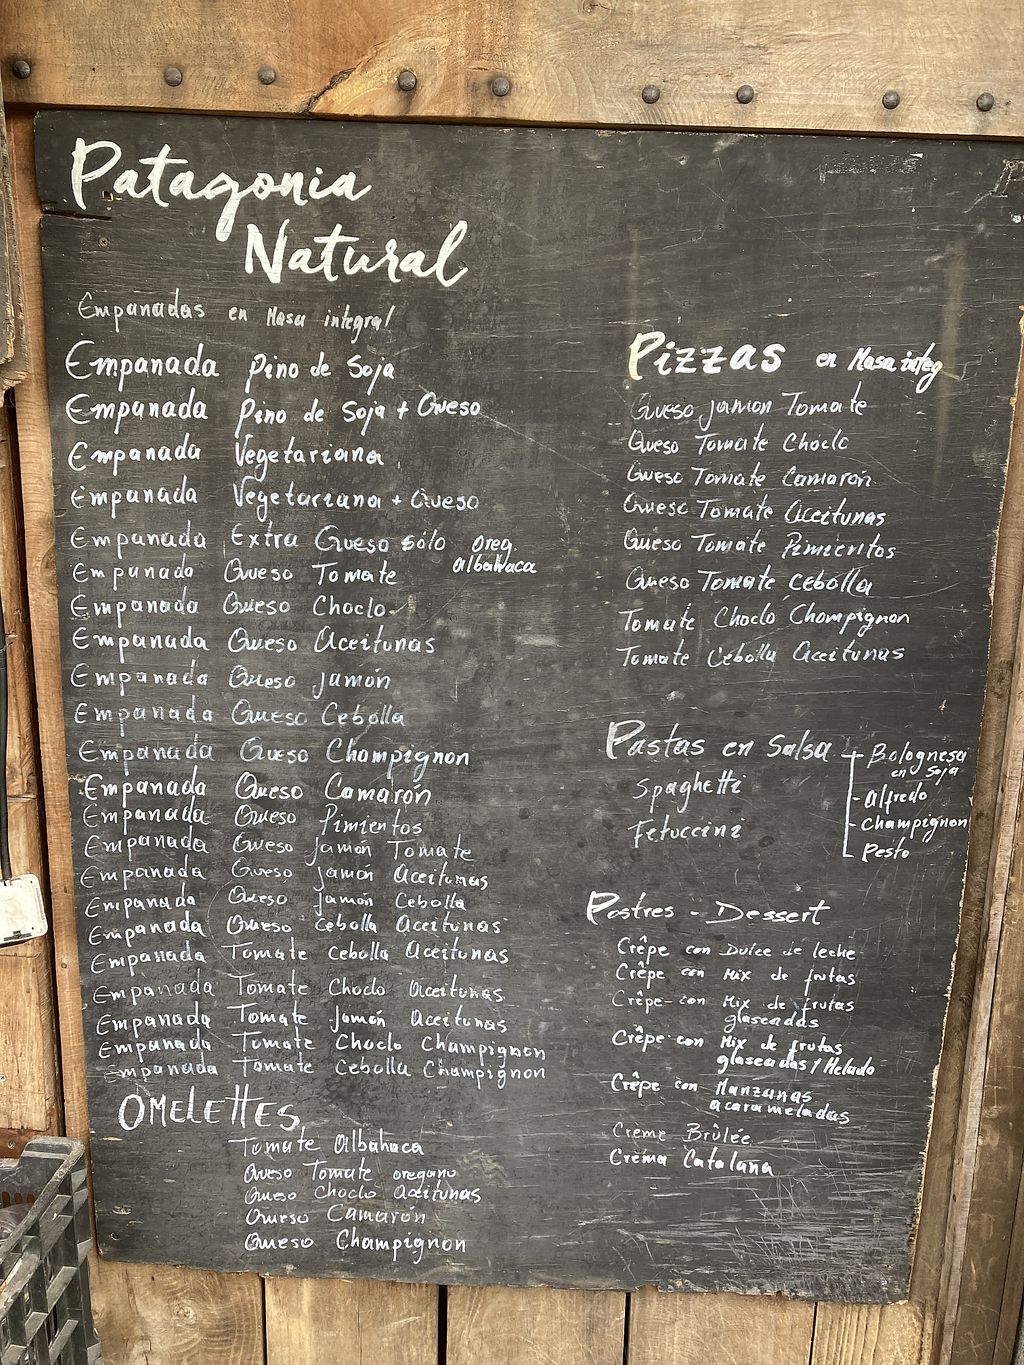 Patagonia
Natural
Empanadas en Masa integral
Empanada Pino de Soja
Empanada Pino de Soja + Queso
Empanada Vegetariana
Empanada Vegetariana + Queso
Empanada Extra Queso sólo oreg.
albahaca
Empanada Queso Tomate
Empanada Queso Choclo
Empanada Queso Aceitunas
Empanada Queso Jamón
Empanada Queso Cebolla
Empanada Queso Champignon
Empanada Queso Camarón
Empanada Queso Pimientos
Empanada Queso Jamón Tomate
Empanada Queso Jamón Aceitunas
Empanada Queso Jamon Cebolla
Empanada Queso Cebolla Aceitunas
Empanada Tomate Cebolla Aceitunas
Empanada Tomate Choclo Aceitunas
Empanada Tomate Jamón Aceitunas
Empanada Tomate Choclo Champignon
Empanada Tomate Cebolla Champignon
OMELETTES
Tomate albahaca
Queso Tomate oregano
Queso Choclo Aceitunas
Queso Camarón
Queso Champignon
Pizzas en Masa integ
Queso Jamon Tomate
Queso Tomate Choclo
Queso Tomate Camarón
Queso Tomate Aceitunas
Queso Tomate Pimientos
Queso Tomate Cebolla
Tomate Choclo Champignon
Tomate Cebolla Aceitunas
Pastas en Salsa
Bolognesa
en Soja
Alfredo
Champignon
Pesto
Spaghetti
Fetuccini
Postres - Dessert
Crêpe con Dulce de leche
Crêpe con Mix de frutas
Crêpe con Mix de frutas
glaseadas
Crêpe con Mix de frutas
glaseadas y Helado
Crêpe con Manzanas
acarameladas
Crème Brûlée
Crema Catalana